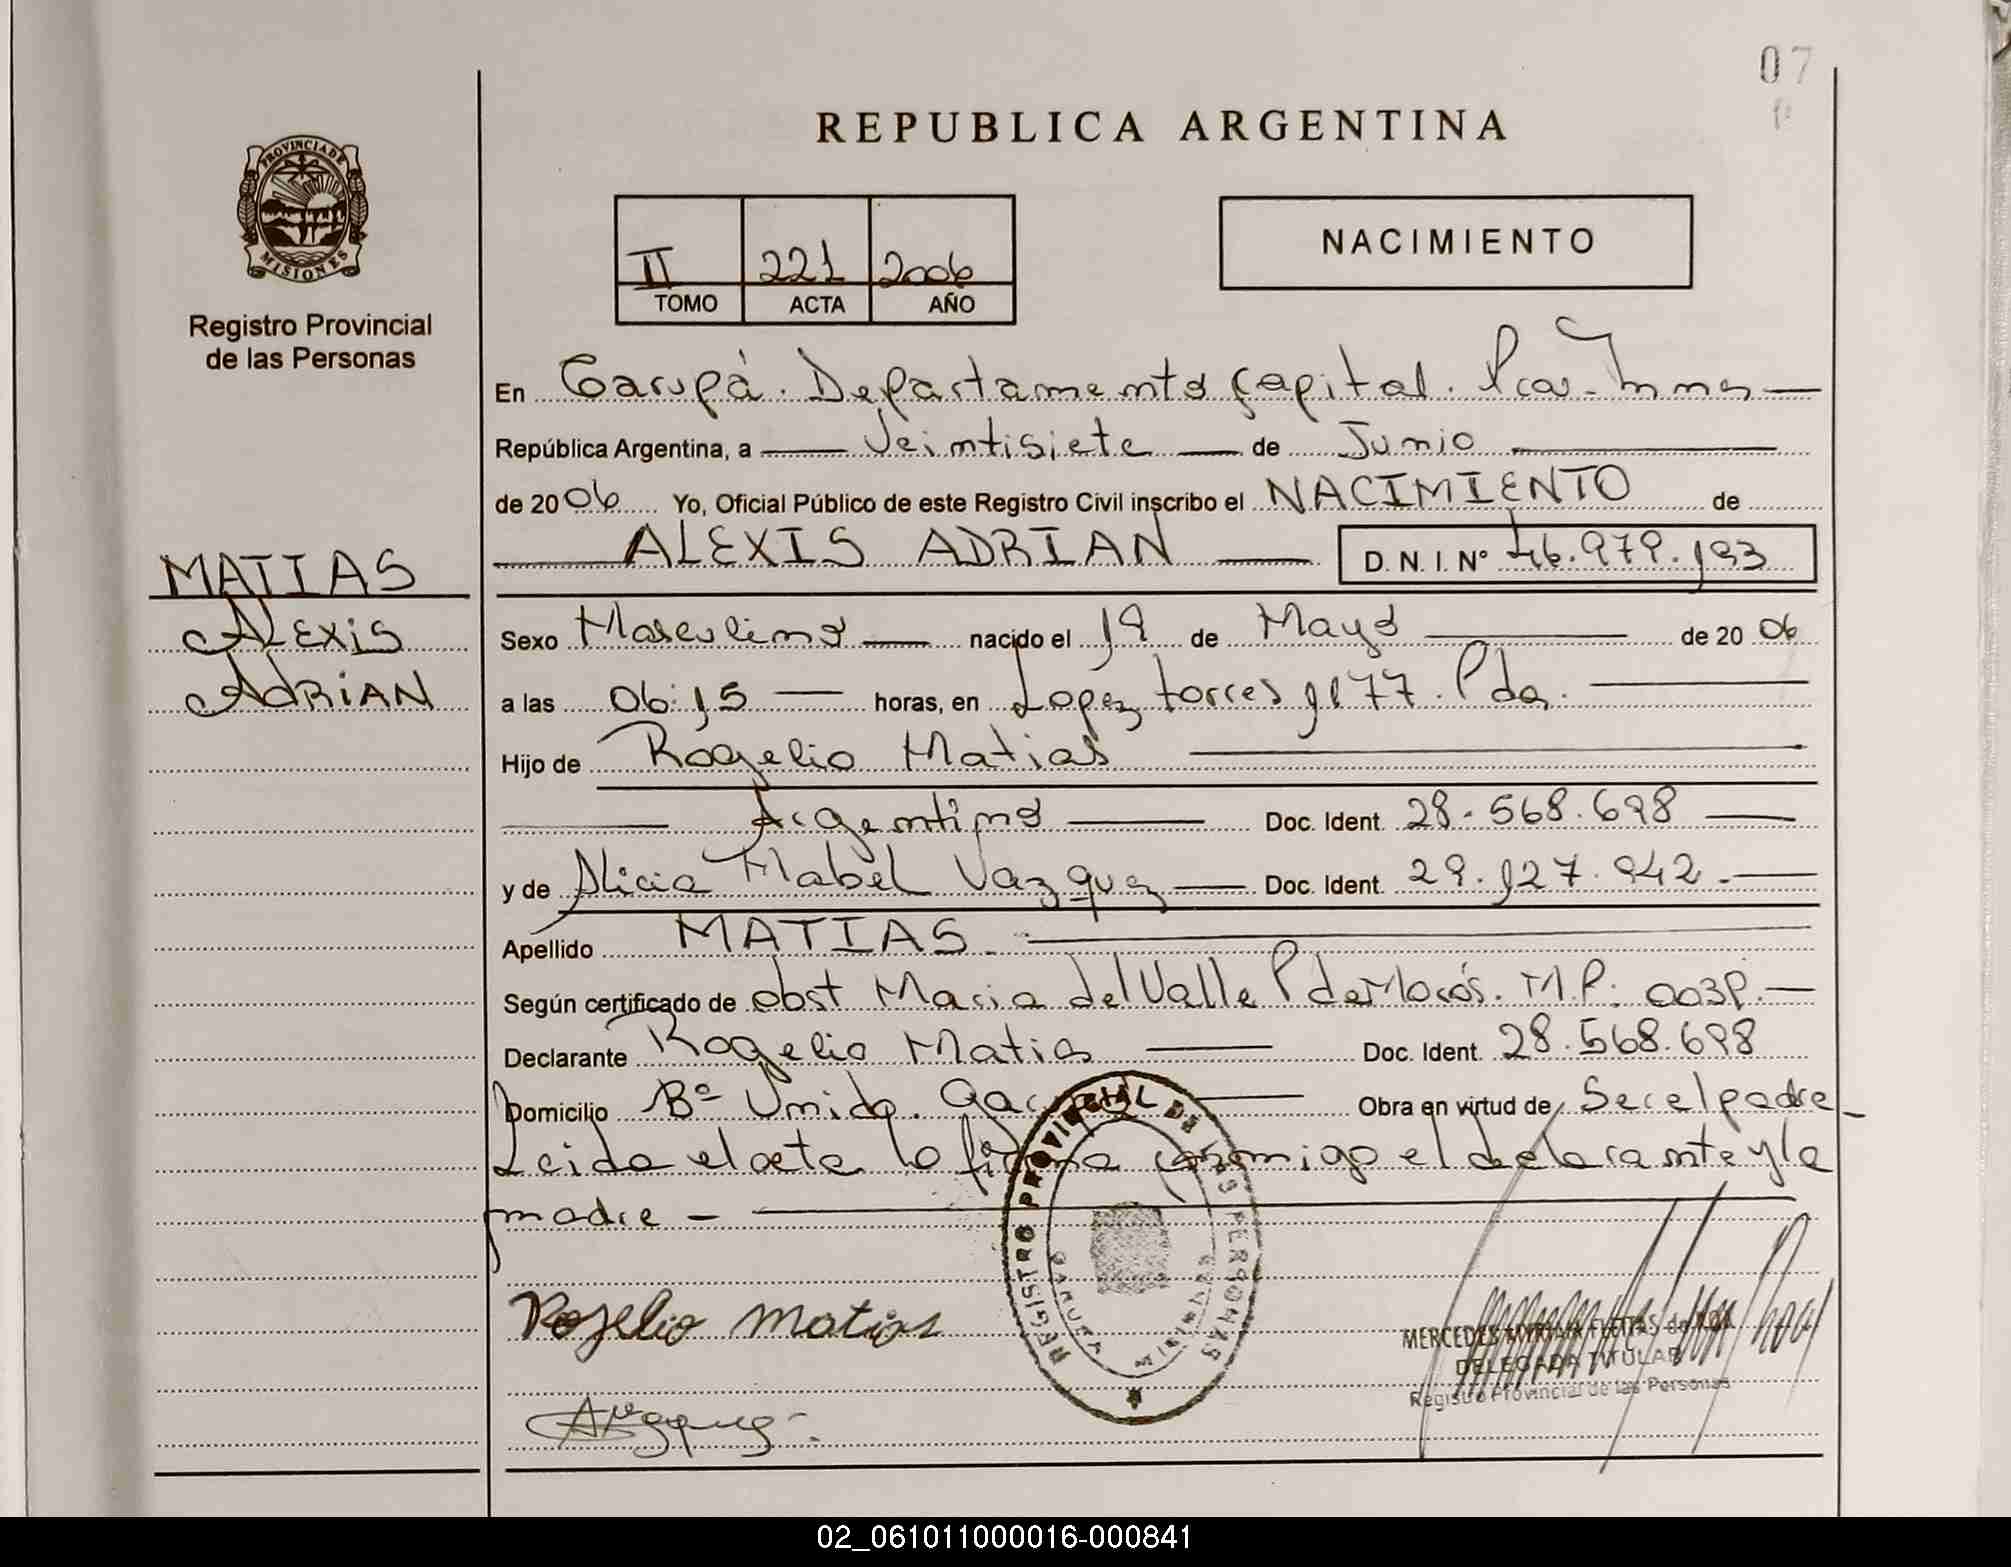 07
REPUBLICA ARGENTINA
PROVINCIA DE
MISIONES
Registro Provincial
de las Personas
II 221 2006
TOMO ACTA AÑO
NACIMIENTO
En Garupá. Departamento Capital. Pcia. Mnes
República Argentina, a Veintisiete de Junio
de 2006 Yo, Oficial Público de este Registro Civil inscribo el NACIMIENTO de
ALEXIS ADRIAN D. N. I. Nº 46.979.193
MATIAS
ALEXIS
ADRIAN
Sexo Masculino nacido el 19 de Mayo de 2006
a las 06:15 horas, en Lopez torres 1177. Pdas.
Hijo de Rogelio Matias
Argentino Doc. Ident. 28.568.698
y de Alicia Mabel Vazquez Doc. Ident. 29.127.942.
Apellido MATIAS
Según certificado de obst Maria del Valle P de M.P: 0039.
Declarante Rogelio Matias Doc. Ident. 28.568.698
Domicilio Bº Unido. Obra en virtud de Ser el padre
Leida el acta la firma conmigo el declarante y la
madre
REGISTRO PROVINCIAL DE LAS PERSONAS
GARUPA
Rogelio Matias
AVazquez
MERCEDES MYRIAM FLEITAS de
DELEGADA TITULAR
Registro Provincial de las Personas
02_061011000016-000841